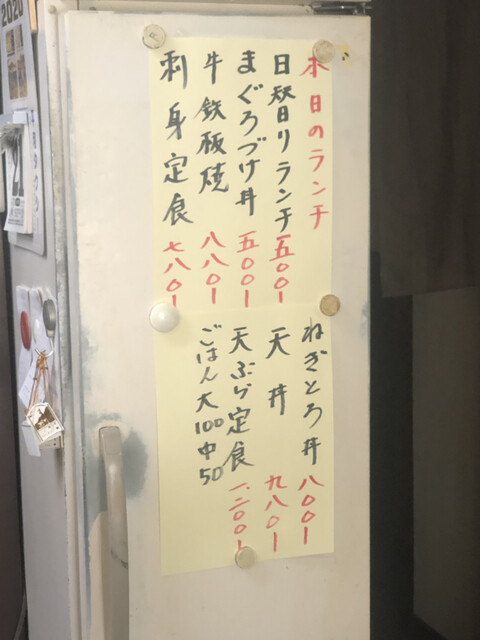 本日のランチ
日替りランチ 五〇〇ー
まぐろづけ丼 五〇〇ー
牛鉄板焼 八八〇ー
刺身定食 七八〇ー
ねぎとろ丼 八〇〇ー
天丼 九八〇ー
天ぷら定食 一、二〇〇ー
ごはん大100中50
2020